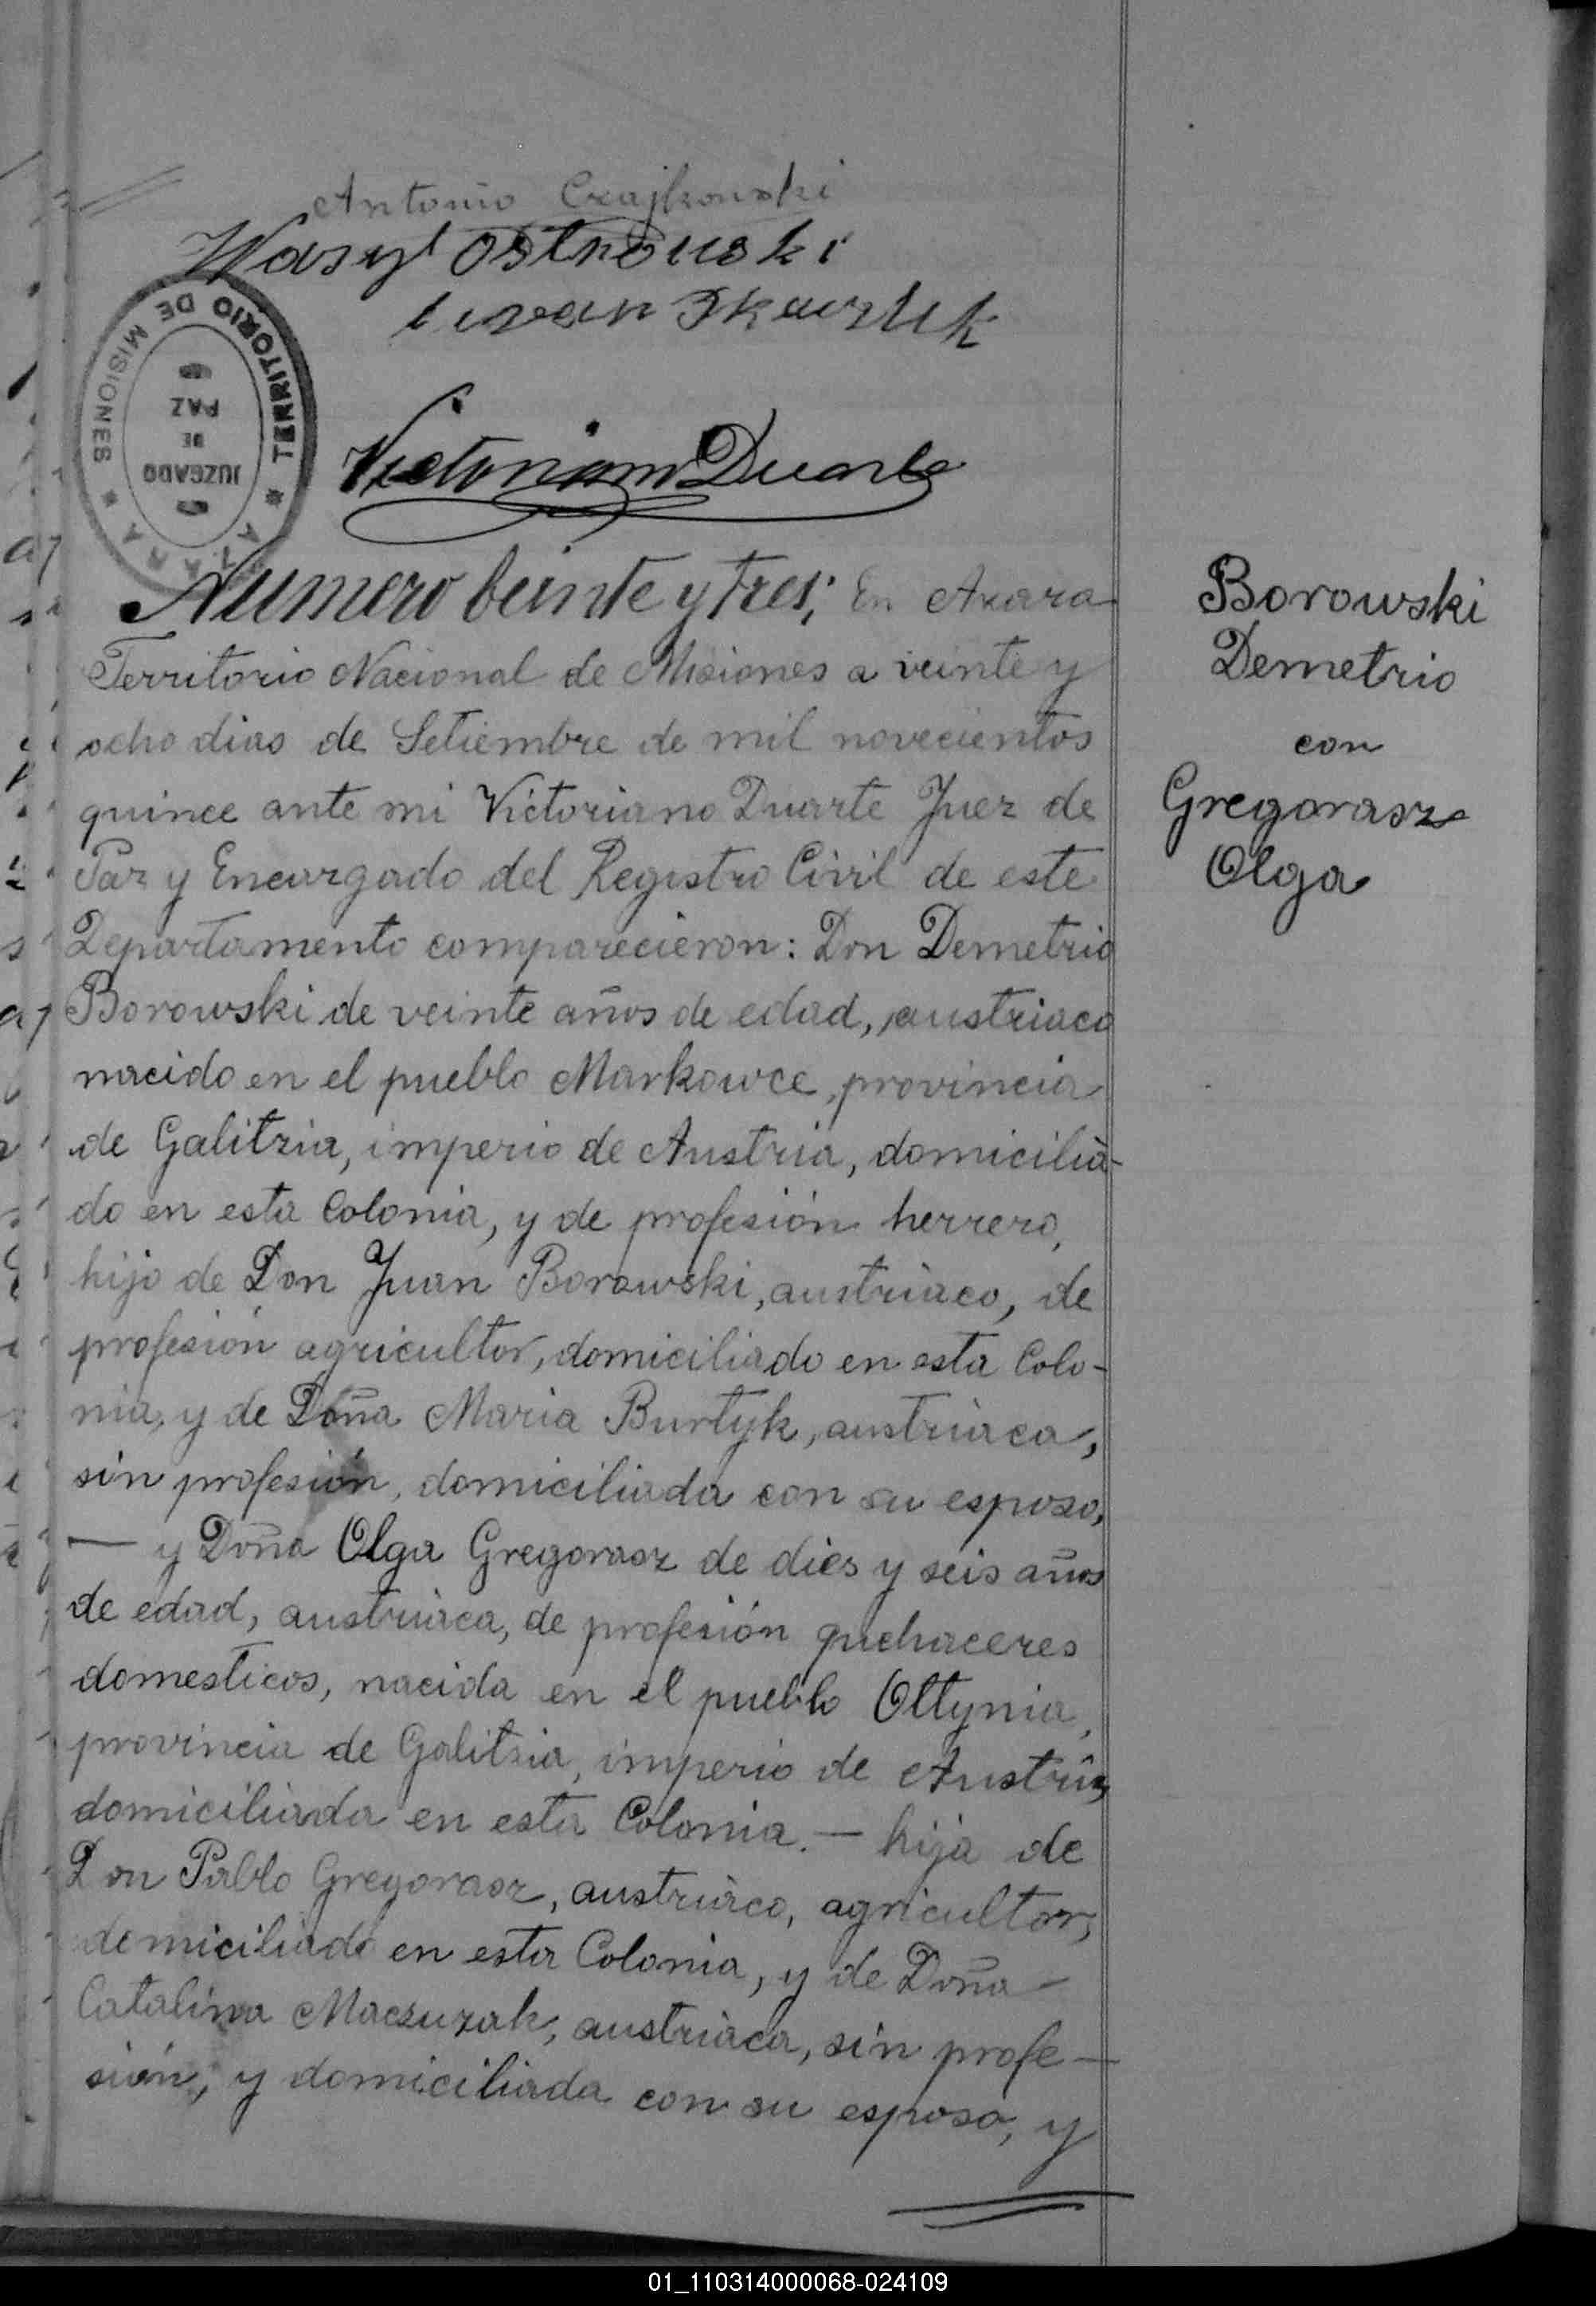 Antonio Czajkowski
Wasyl Ostrowski
Victoriano Duarte
TERRITORIO DE MISIONES
AZARA
JUZGADO
DE
PAZ
Numero beinte y tres; En Azara
Territorio Nacional de Misiones a veinte y
ocho dias de Setiembre de mil novecientos
quince ante mi Victoriano Duarte Juez de
Paz y Encargado del Registro Civil de este
Departamento comparecieron: Don Demetrio
Borowski de veinte años de edad, austriaco
nacido en el pueblo Markowce, provincia
de Galitzia, imperio de Austria, domicilia-
do en esta Colonia, y de profesión herrero,
hijo de Don Juan Borowski, austriaco, de
profesión agricultor, domiciliado en esta Colo-
nia, y de Doña Maria Burtyk, austriaca,
sin profesión, domiciliada con su esposo,
— y Doña Olga Gregorasz de dies y seis años
de edad, austriaca, de profesión quehaceres
domesticos, nacida en el pueblo Ottynia,
provincia de Galitzia, imperio de Austria,
domiciliada en esta Colonia. — hija de
Don Pablo Gregorasz, austriaco, agricultor,
domiciliado en esta Colonia, y de Doña —
Catalina Maczuzak, austriaca, sin profe—
sión, y domiciliada con su esposo, y
Borowski
Demetrio
con
Gregorasz
Olga
01_110314000068-024109